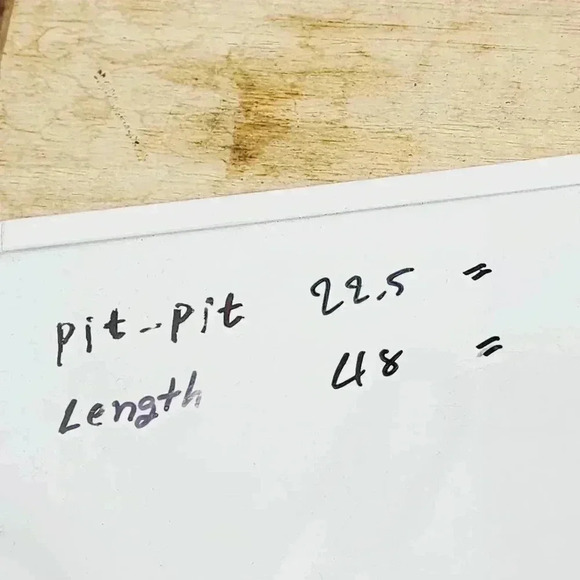 Pit-Pit 22.5 =
Length 48 =